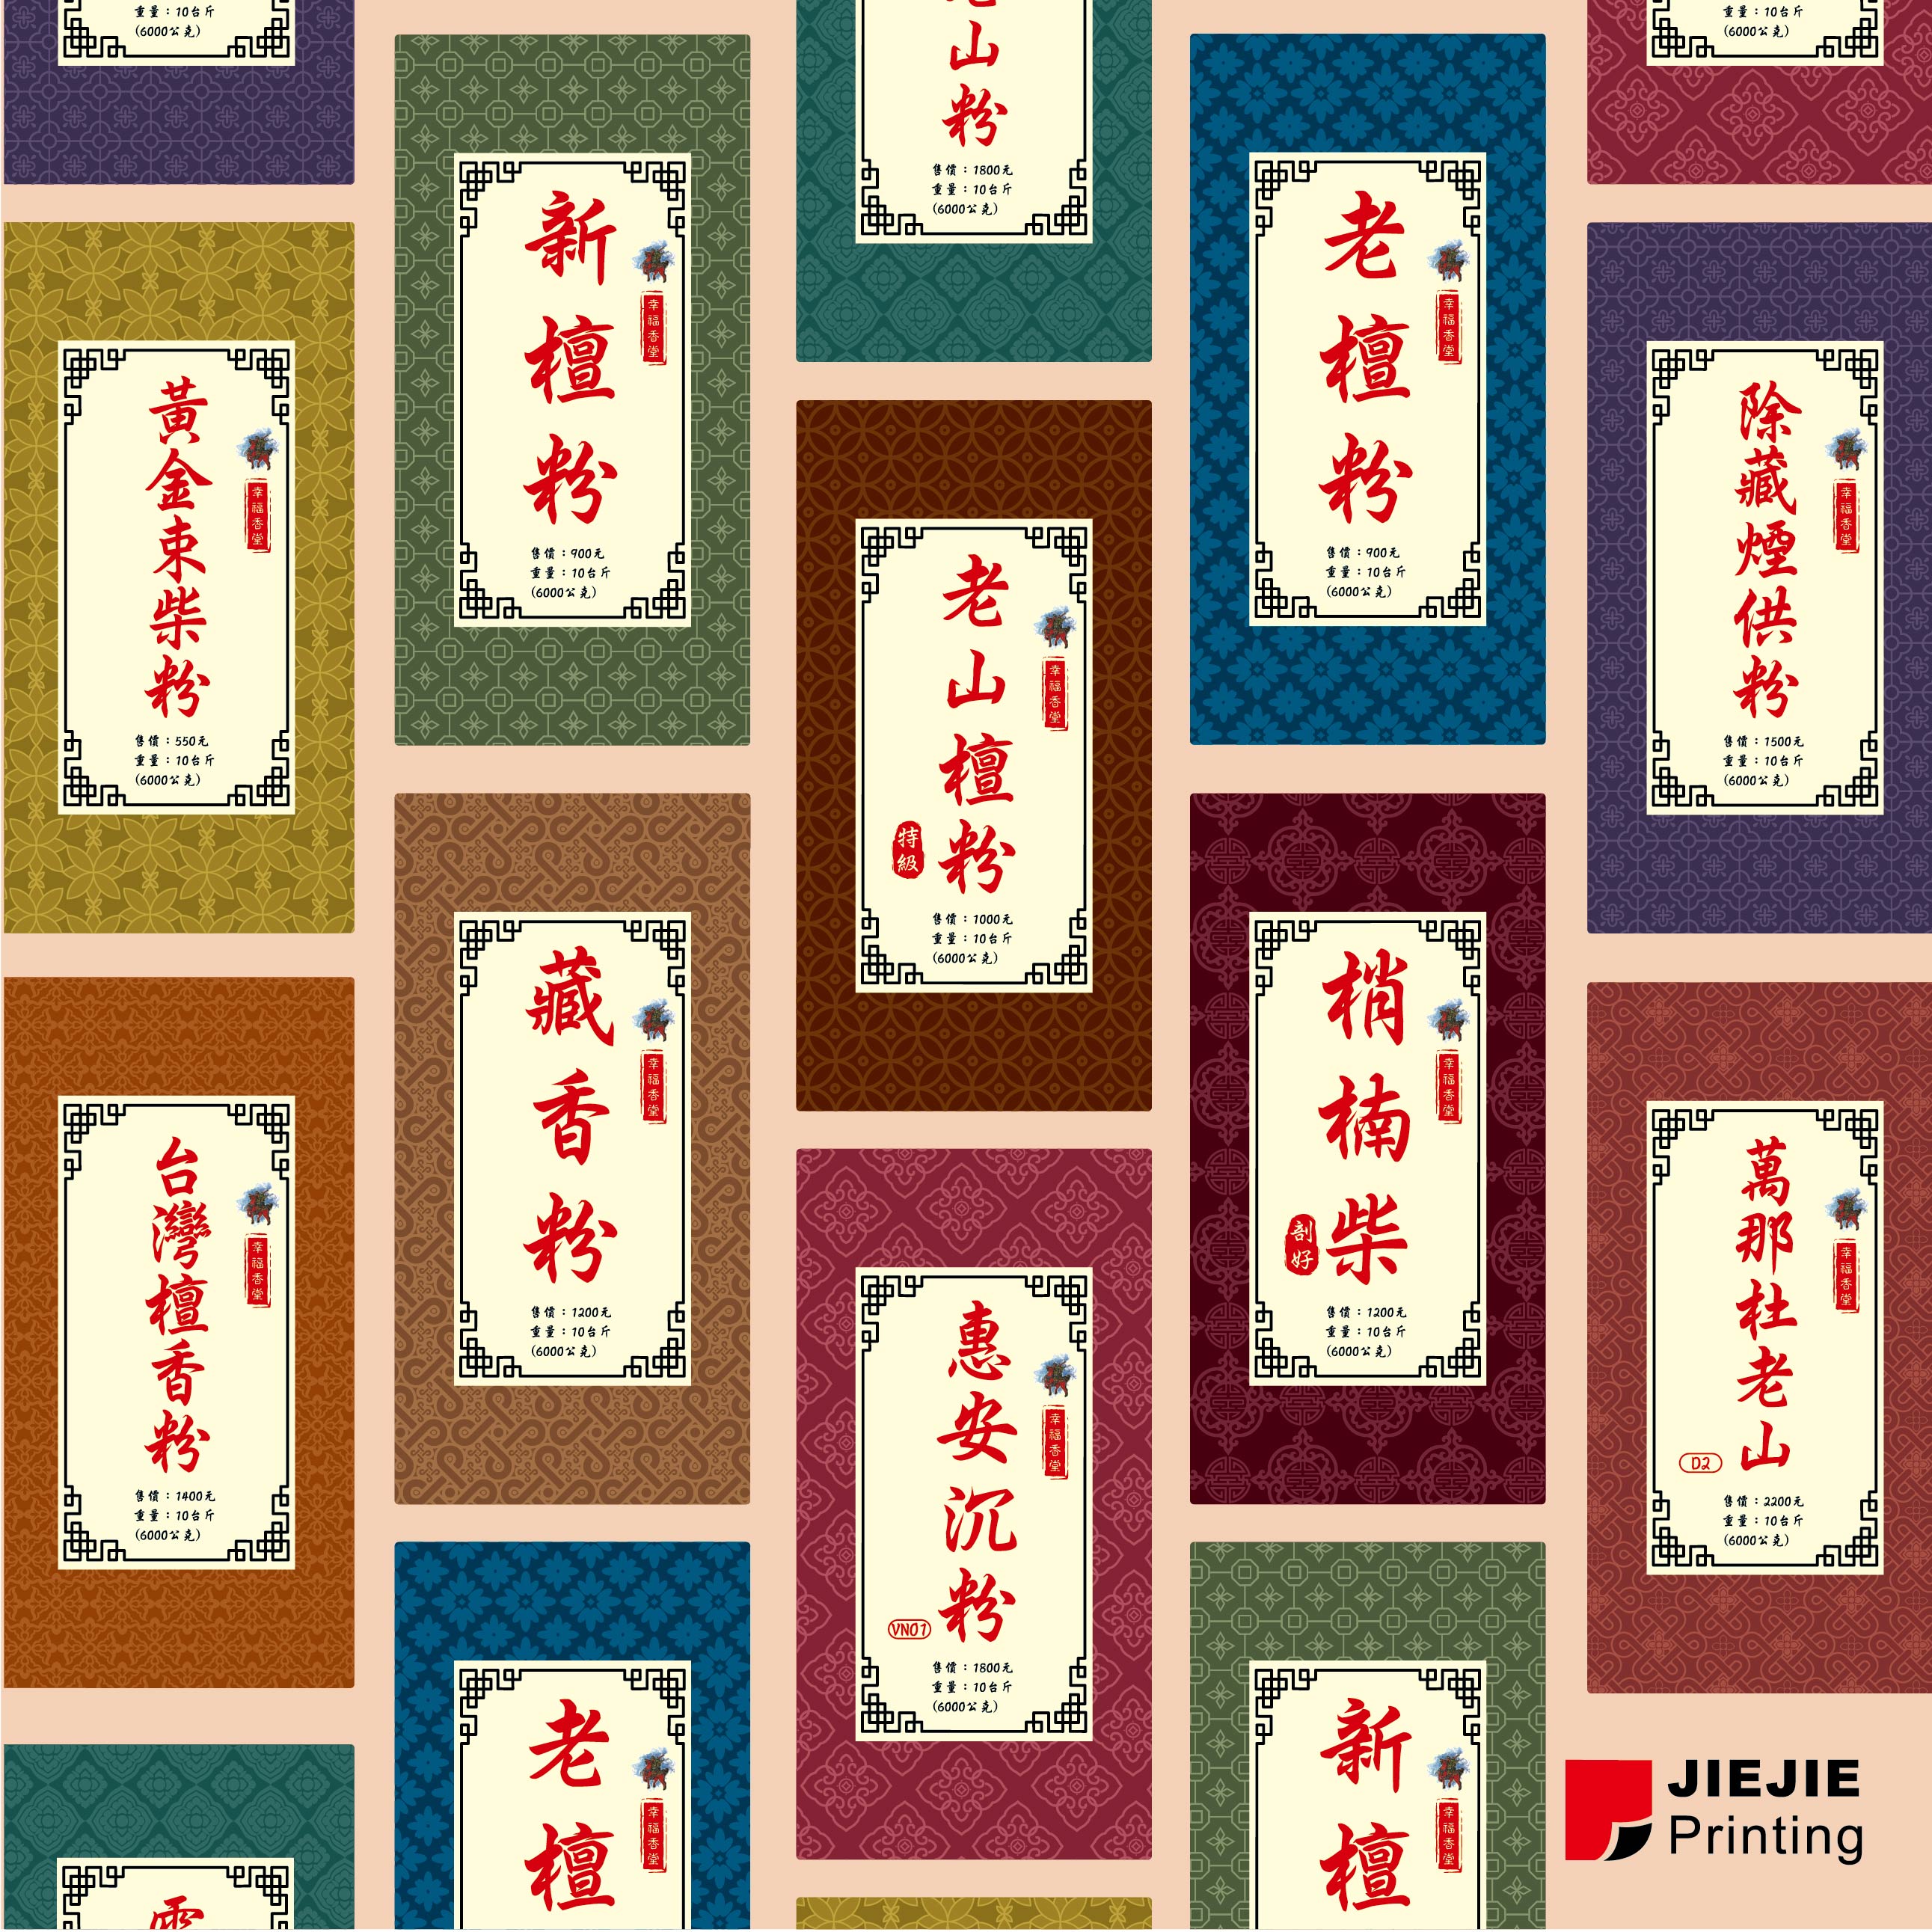 重量：10台斤
(6000公克)
黃金束柴粉
幸福香堂
售價：550元
重量：10台斤
(6000公克)
台灣檀香粉
幸福香堂
售價：1400元
重量：10台斤
(6000公克)
新檀粉
幸福香堂
售價：900元
重量：10台斤
(6000公克)
藏香粉
幸福香堂
售價：1200元
重量：10台斤
(6000公克)
老檀
幸福香堂
山粉
售價：1800元
重量：10台斤
(6000公克)
老山檀粉
幸福香堂
特級
售價：1000元
重量：10台斤
(6000公克)
惠安沉粉
幸福香堂
VN01
售價：1800元
重量：10台斤
(6000公克)
老檀粉
幸福香堂
售價：900元
重量：10台斤
(6000公克)
梢楠柴
幸福香堂
剖好
售價：1200元
重量：10台斤
(6000公克)
新檀
幸福香堂
重量：10台斤
(6000公克)
除藏煙供粉
幸福香堂
售價：1500元
重量：10台斤
(6000公克)
萬那杜老山
幸福香堂
D2
售價：2200元
重量：10台斤
(6000公克)
JIEJIE
Printing